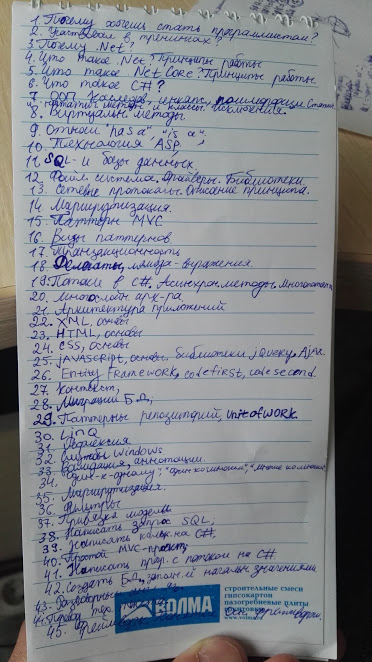 1. Почему хочешь стать программистом?
2. Участвовал в тренингах?
3. Почему Net?
4. Что такое .Net? Принципы работы
5. Что такое Net Core? Принципы работы.
6. Что такое C#?
7. ООП. наслед, инкапс, полиморфизм Статич.
методы и классы. исключения.
8. Виртуальные методы
9. Отнош "has a", "is a".
10. Технология ASP.
11. SQL- и базы данных.
12. Файл. система. Драйверы. Библиотеки
13. Сетевые протоколы. Описание принципа.
14. Маршрутизация.
15. Паттерн MVC
16. Виды паттернов.
17. Транзакционность
18. Делегаты, лямбда-выражения
19. Потоки в C#, Асинхрон. методы.
20. Многослойн арх-ра.
21. Архитектура приложений
22. XML, основы
23. HTML, основы
24. CSS, основы
25. JAVASCRIPT, основы библиотеки, jQuery, Ajax.
26. Entity Framework, code first, code second
27. Контекст,
28. Миграции БД,
29. Паттерны репозиторий, Unit of WORK
30. LINQ
31. Рефлексия
32. Windows
33. Валидация, аннотации.
34. "Один-к-одному", "один ко многим",
35. Маршрутизация.
36. Фильтры
37. Привязка модели
38. Написать запрос SQL,
39. Написать на C#.
40. Простой MVC-проект,
41. Написать прер. с потоком на C#
42. Создать БД, заполн. её начальн. значениями
43.
44.
45.
ВОЛМА
строительные смеси
гипсокартон
пазогребневые плиты
www.volma.ru